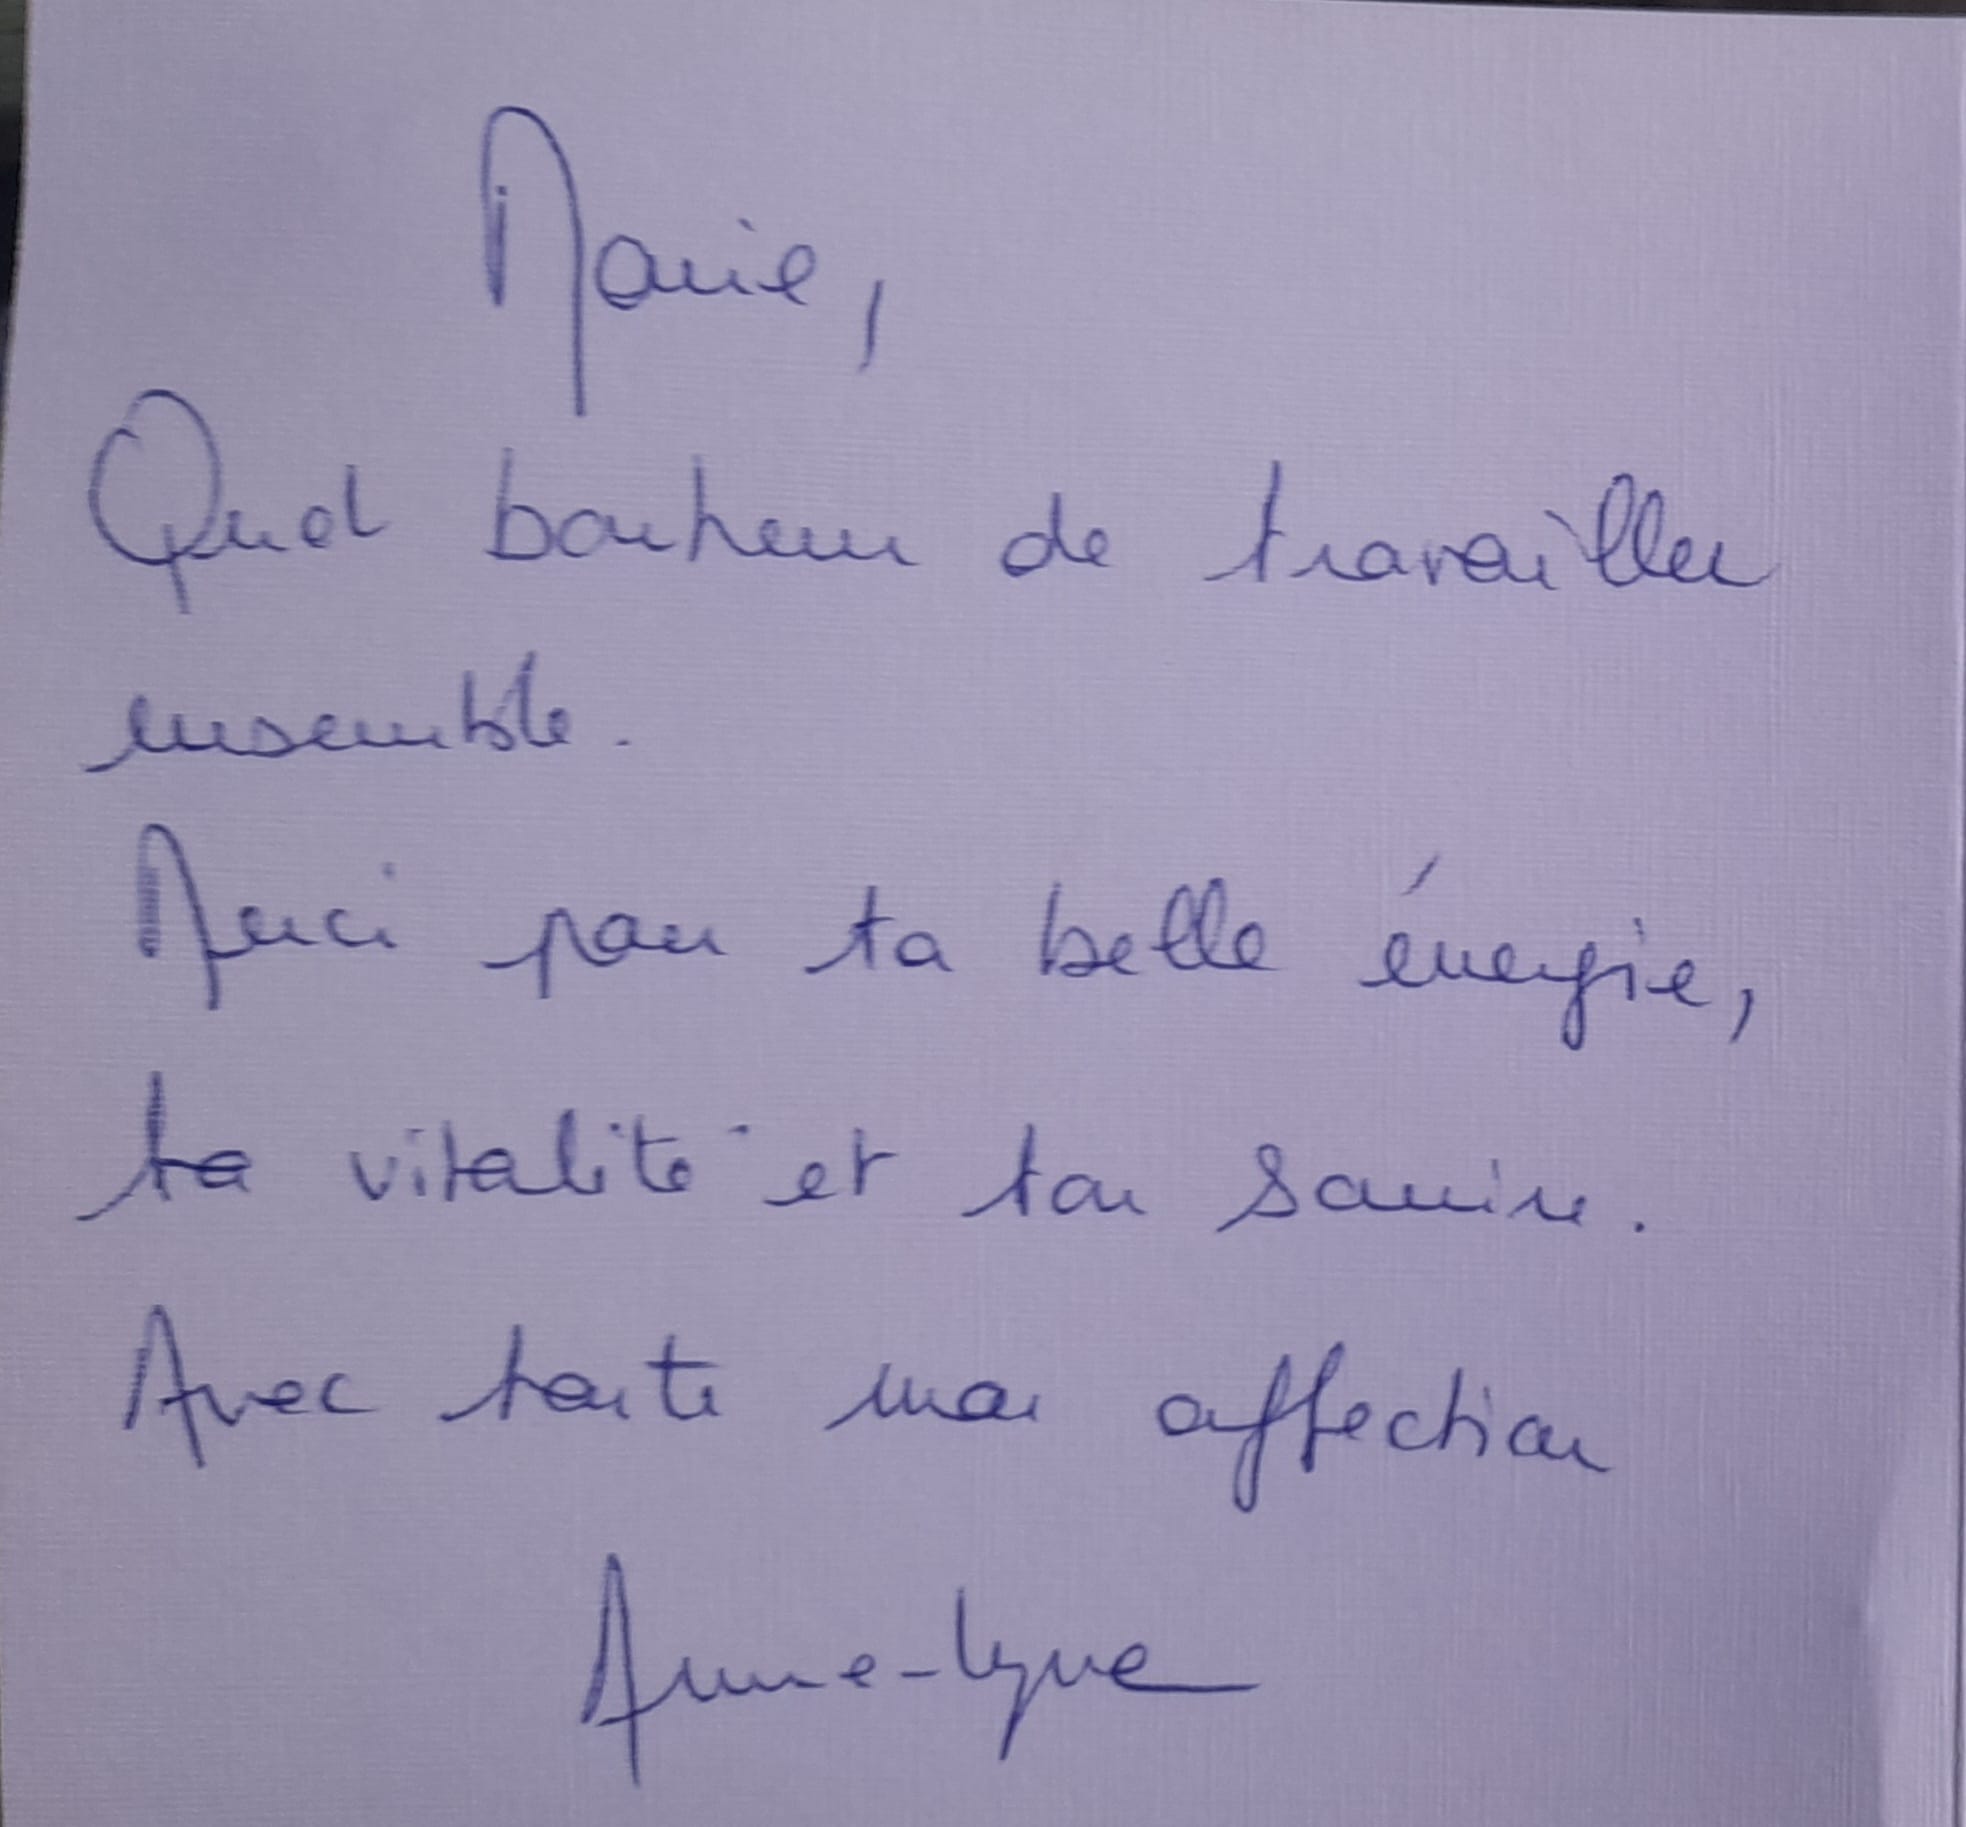 Marie,
Quel bonheur de travailler
ensemble.
Merci pour ta belle énergie,
ta vitalité et ton sourire.
Avec toute mon affection
Anne-Lyne